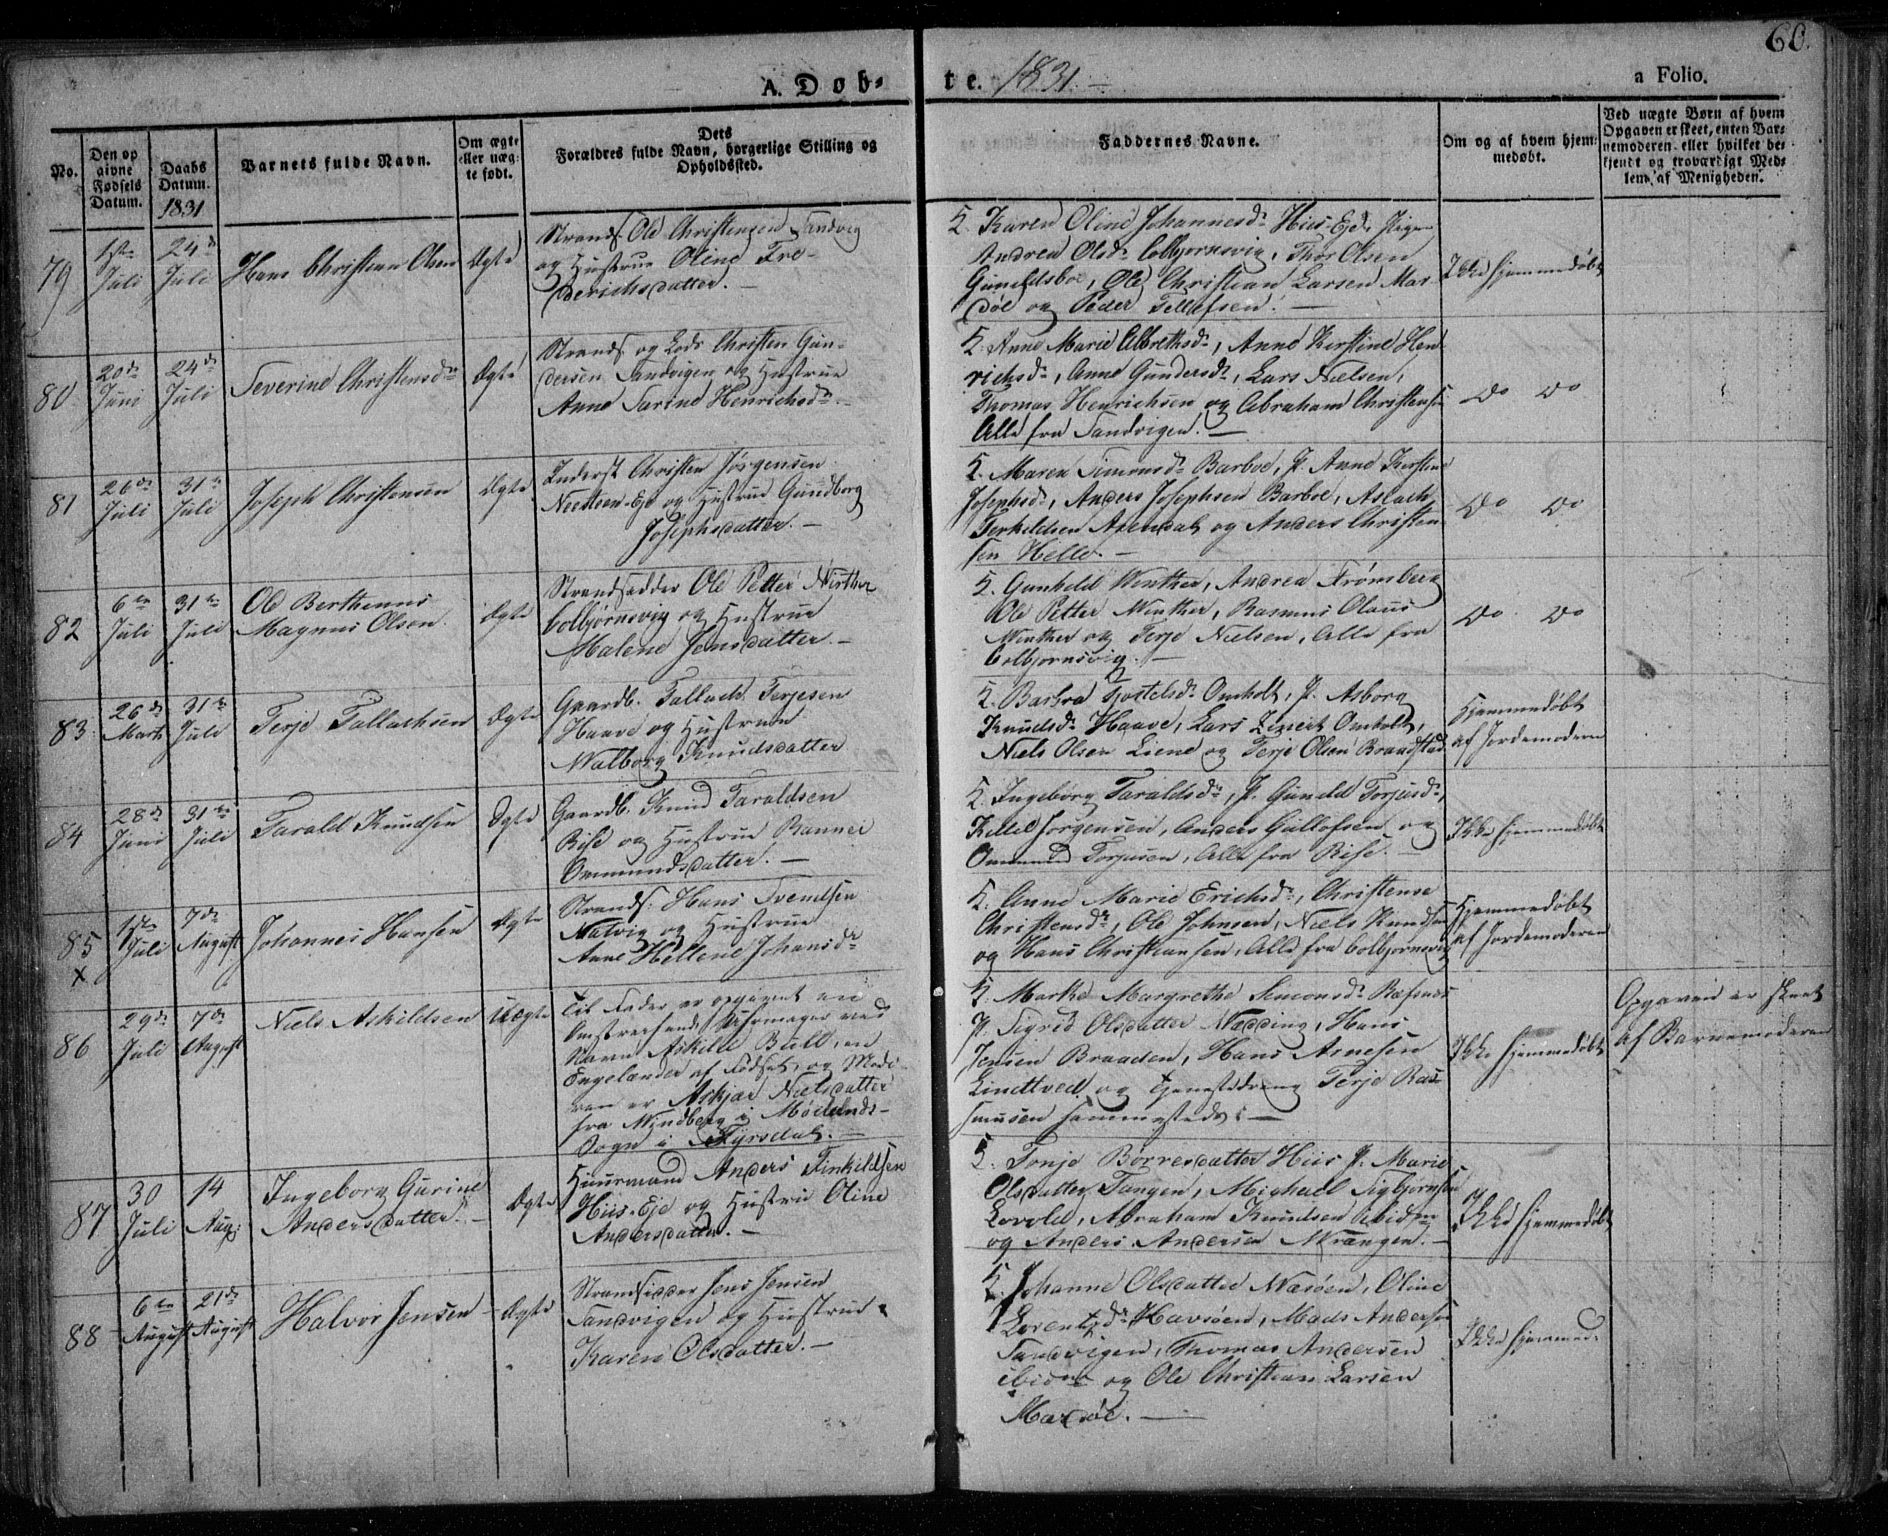 60.
A. Døb-
te. 1831. -
a Folio.
No.
Den op
givne
Fødsels
Datum.
Daabs
Datum.
1831
Barnets fulde Navn.
Om ægte
eller uæg-
te født.
Dets
Forældres fulde Navn, borgerlige Stilling og
Opholdssted.
Faddernes Navne.
Om og af hvem hjem-
medøbt.
Ved uægte Børn af hvem
Opgaven er skeet, enten Bar-
nemoderen eller hvilket be-
kjendt og troværdigt Med-
lem af Menigheden.
79
1ste
Juli
24de
Juli
Hans Christian Olsen
Ægte
Strands. Ole Christensen Sandvig
og Hustrue Oline Fre-
derichsdatter. -
K. Karen Oline Johannesdr Hiis-Eje, Pigen
Andrea Olsdr Colbjørnsvig, Thor Olsen
Gunildsboe, Ole Christian Larsen Mar-
døe og Peder Tellefsen. -
Ikke hjemmedøbt
80
20de
Juni
24de
Juli
Severine Christensdr
Ægte
Strands. og Lods Christen Gun-
dersen Sandvigen og Hustrue
Anne Sarine Henrichsdr. -
K. Anne Marie Albrethsdr, Anne Kirstine Hen
richsdr, Anne Gundersdr, Lars Nielsen,
Thomas Henrichsen og Abraham Christense
Alle fra Sandvigen. -
Do Do
81
26de
Juli
31te
Juli
Joseph Christensen
Ægte
Inderst Christen Jørgensen
Neersteen-Eje og Hustrue Gundborg
Josephsdatter. -
K. Maren Simonsdr Barboe, P. Anne Kirstine
Josephsdr, Anders Josephsen Barboe, Aslach
Terkildsen Arendal og Anders Christen-
sen Helle. -
Do Do
82
6te
Juli
31te
Juli
Ole Berthenus
Magnus Olsen.
Ægte
Strandsidder Ole Petter Winther
Colbjørnsvig og Hustrue
Malene Jensdatter. -
K. Gunhild Winther, Andrea Frømberg
Ole Petter Winther, Rasmus Olaus
Winther og Terje Nielsen, Alle fra
Colbjørnsvig. -
Do Do
83
26de
Marts
31te
Juli
Terje Tallachsen
Ægte
Gaardb. Tallach Terjesen
Haave og Hustrue
Walborg Knudsdatter
K. Barbra Omholt, P. Asborg
Knudsdr Haave, Lars Omholt,
Niels Olsen Liene og Terje Olsen Brandstad
Hjemmedøbt
af Jordemoderen
84
28de
Juni
31te
Juli
Tarald Knudsen
Ægte
Gaardb. Knud Taraldsen
Rise og Hustrue Rannei
Ommundsdatter. -
K. Ingeborg Taraldsdr, P. Gunild Torjusdr,
Kittil Jørgensen, Anders Gullofsen og
Ommund Torjusen, Alle fra Rise. -
Ikke hjemmedøbt
85
x
1ste
Juli
7de
August
Johannes Hansen
Ægte
Strands. Hans Svendsen
Natvig og Hustrue
Anne Hellene Johansdr
K. Anne Marie Erichsdr, Christense
Christensdr, Ole Johnsen, Niels Knudsen
og Hans Christiansen, Alle fra Colbjørnsvig
Hjemmedøbt
af Jordemoderen
86
29de
Juli
7de
August
Niels Askildsen
Uægte
Til Fader er opgivet en
omstreifende Uhrmager ved
Navn Askild Bull, en
Engelænder af Fødsel, og Mode-
ren er Askjær Nielsdatter
fra Windberg i Moelands-
Sogn i Fyrsdal. -
K. Marthe Margrethe Simonsdr Refsnes
P. Sigrid Olsdatter Nedding, Hans
Jensen Braaden, Hans Arnesen
Lindtved og Tjenestdreng Terje Ras-
musen sammesteds. -
Ikke hjemmedøbt
Opgaven er skeet
af Barnemoderen
87
30
Juli
14
Aug:
Ingeborg Gurine
Andersdatter. -
Ægte
Huusmand Anders Tinkildsen
Hiis-Eje og Hustrue Oline
Andersdatter. -
K. Tonje Børresdatter Hiis P. Marie
Olsdatter Tangen, Michael Sigbjørnsen
Lovold, Abraham Knudsen ibidm
og Anders Andersen Wrængen. -
Ikke hjemmedøbt
88
6te
August
21de
August
Halvor Jensen
Ægte
Strandsidder Jens Jensen
Sandvigen og Hustrue
Karen Olsdatter. -
K. Johanne Olsdatter Nasøen, Oline
Lorentzdr Havsøen, Mads Andersen
Sandvigen, Thomas Andersen
ibidm og Ole Christian Larsen
Mardøe. -
Ikke hjemmed: